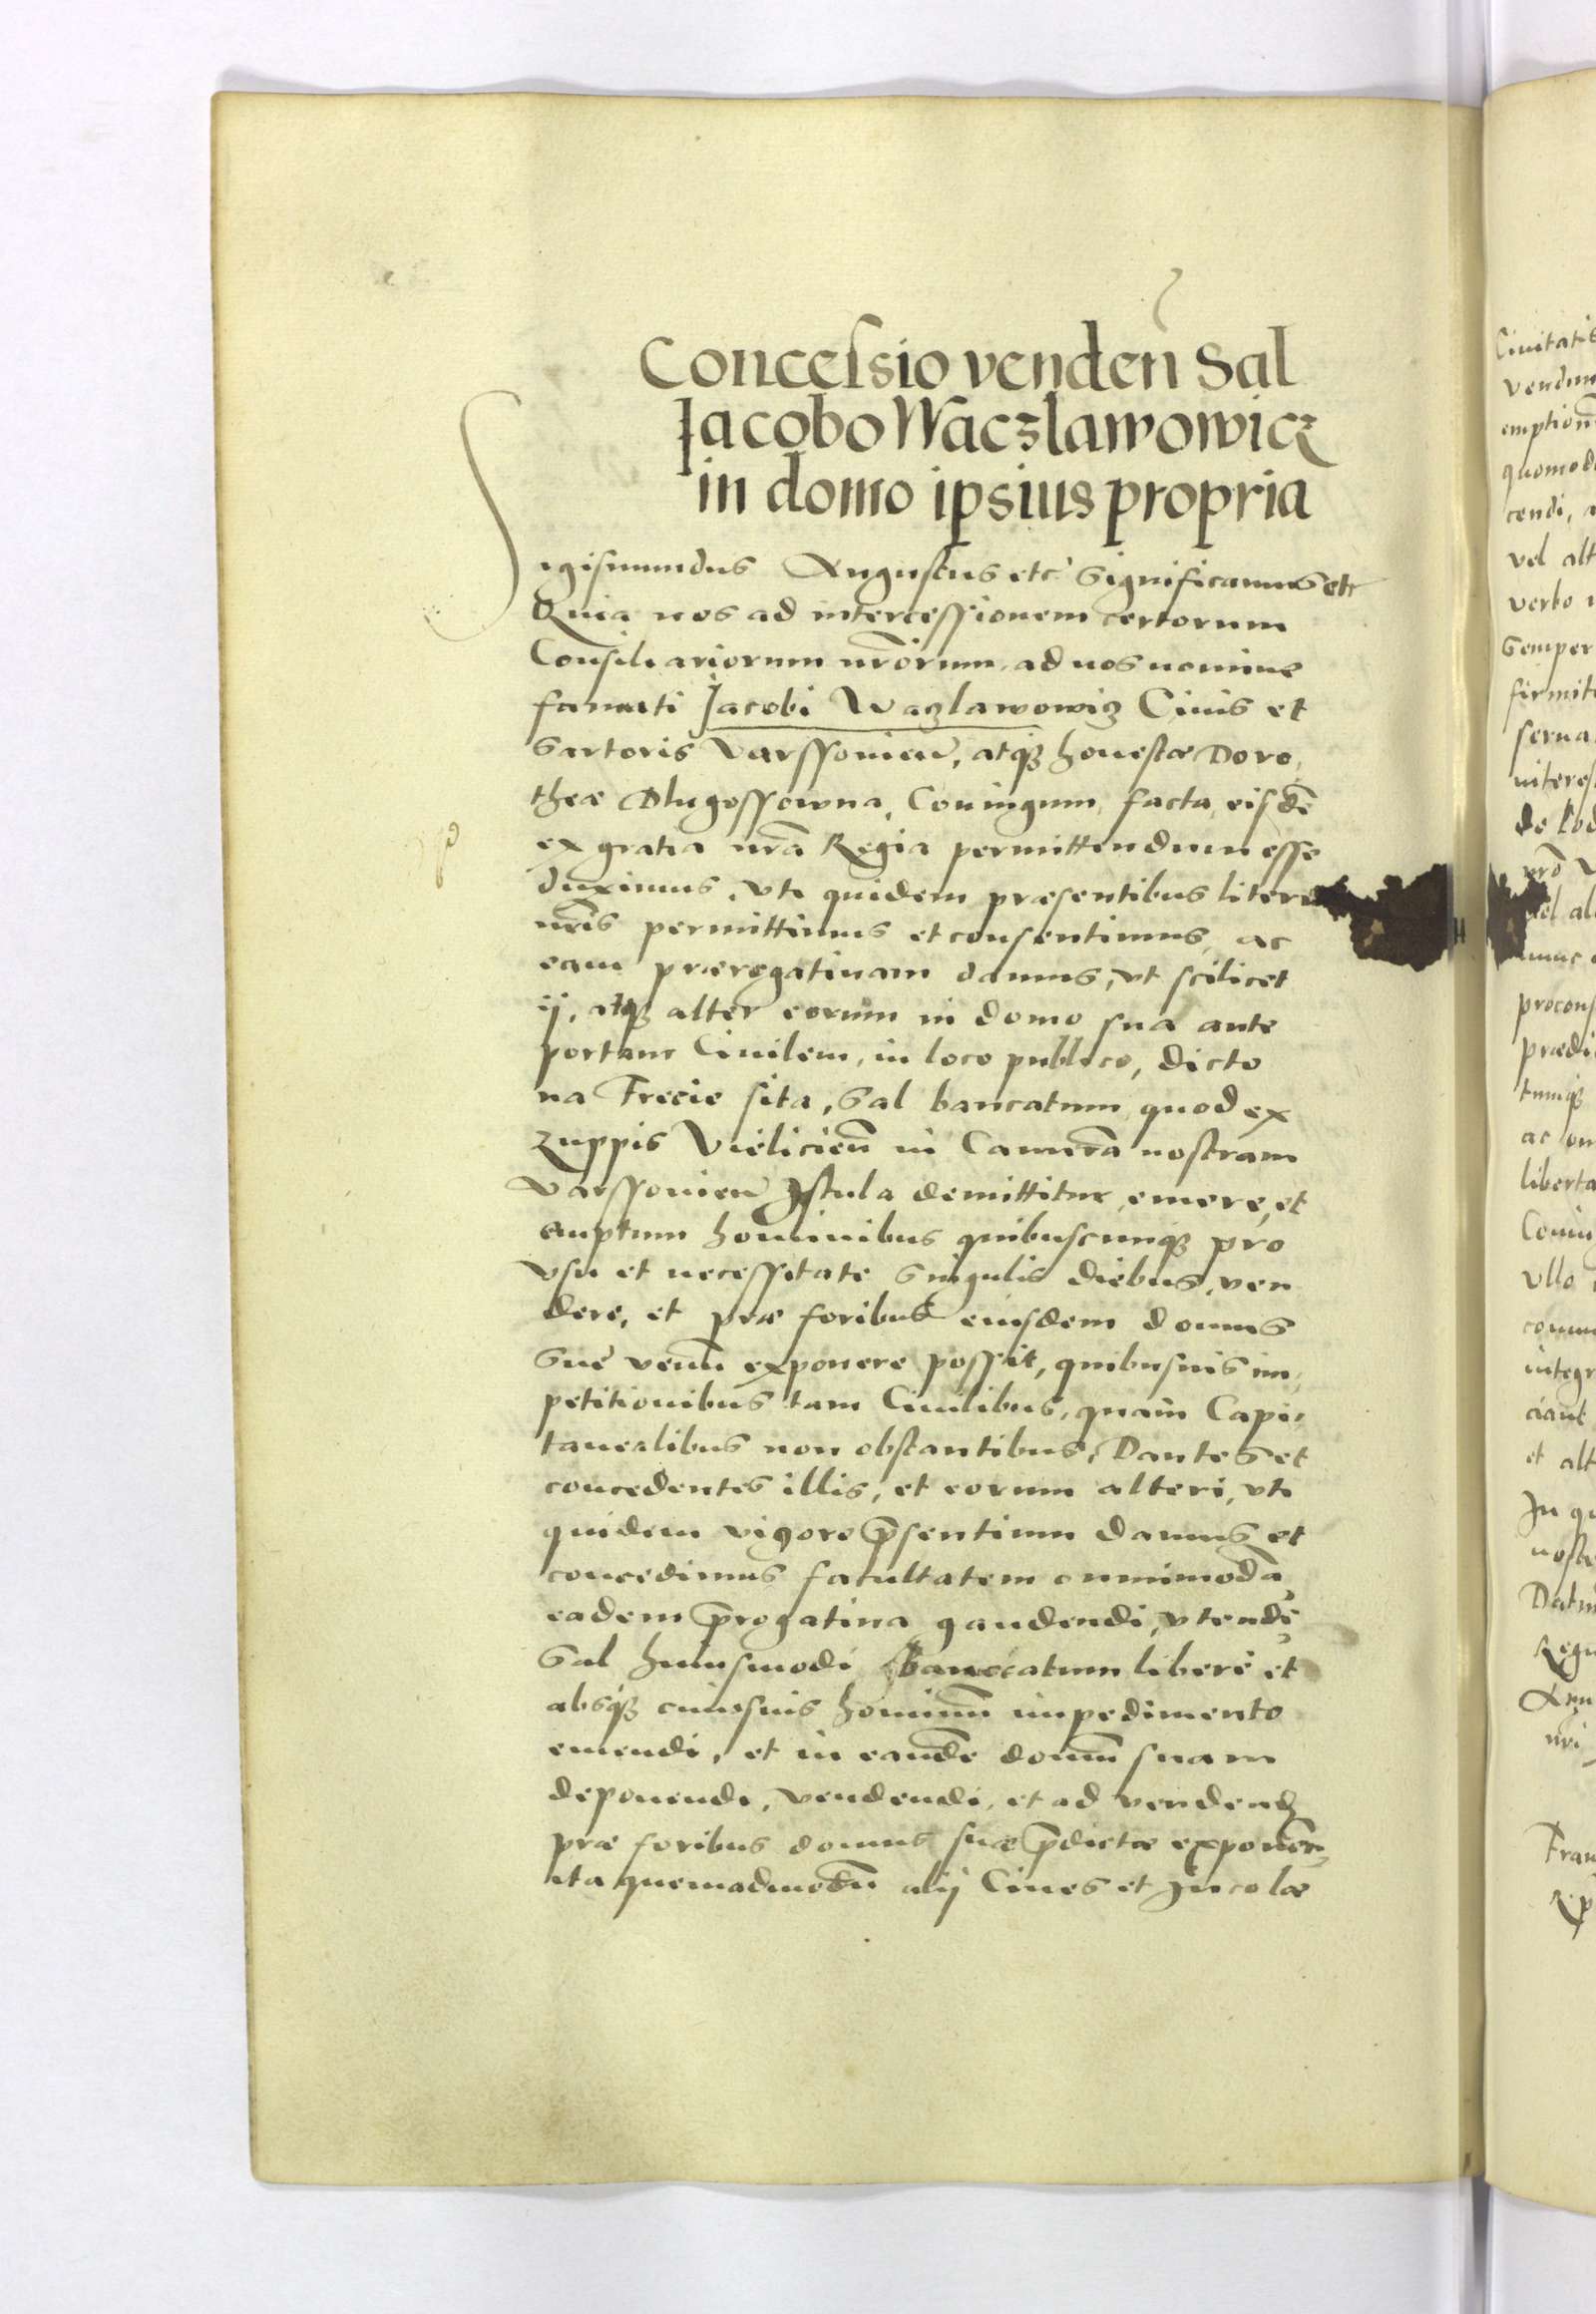 Concessio venden̄ Sal
Jacobo Waczlawowicz
in domo ipsius propria
Sigismundus Augustus etc Significamus etc
Quia nos ad intercessionem certorum
Consiliariorum nr̄orum, ad nos nomine
famati Jacobi Waczlawowicz Ciuis et
Sartoris Varssouien̄, atq3 honestæ Doro,
theæ Dlugossowna, Coniugum, facta, eisdē
ex gratia nr̄a Regia permittendum esse
duximus, vti quidem præsentibus literis
nr̄is permittimus et consentimus, ac
eam prærogatiuam damus, vt scilicet
ij, atq3 alter eorum in domo sua ante
portam Ciuilem, in loco publico, dicto
na Trecie sita, Sal bancatum, quod ex
Zuppis Vieliciēn̄ in Camerā nostram
Varssouien̄ Istula demittitur, emere, et
emptum hominibus quibuscunq3 pro
vsu et necessitate Singulis diebus, ven
dere, et præ foribus eiusdem domus
Suæ venū exponere possit, quibusuis im,
petitionibus tam Ciuilibus, quam Capi,
tanealibus non obstantibus, Dantes et
concedentes illis, et eorum alteri, vti
quidem vigore p̄sentium damus et
concedimus facultatem omnimodā
eadem p̄rogatiua gaudendi, vtendi,
Sal huiusmodi bancatum liberè et
absq3 cuiusuis hominū impedimento
emendi, et in eandē domū suam
deponendi, vendendi, et ad vendend
præ foribus domus suæ p̄dictæ exponen̄,
ita quemadmodū alij Ciues et Incolæ